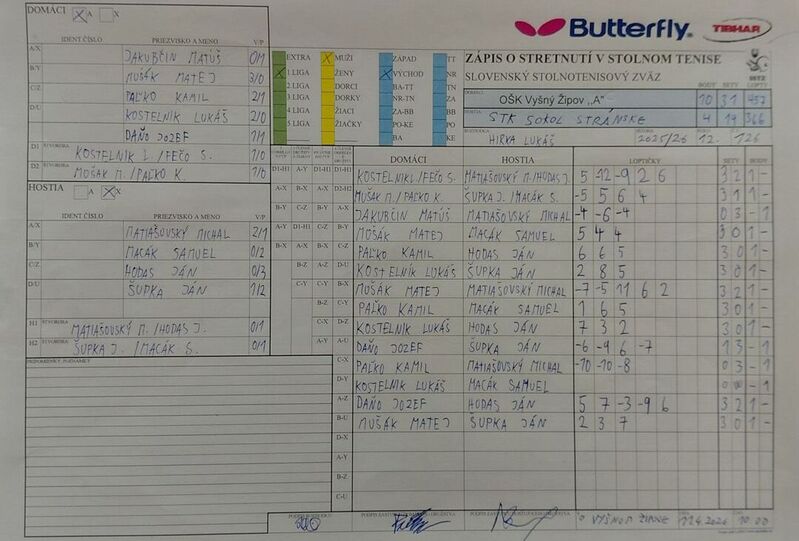 DOMÁCI X A X
Butterfly TIBHAR
IDENT ČÍSLO PRIEZVISKO A MENO V/P
A/X JAKUBČIN MATÚŠ 0/1
B/Y MUŠÁK MATEJ 3/0
C/Z PAĽKO KAMIL 2/1
D/U KOSTELNÍK LUKÁŠ 2/0
DAŇO JOZEF 1/1
D1 ŠTVORHRA KOSTELNÍK L./FEČO S. 1/0
D2 ŠTVORHRA MUŠÁK M./PAĽKO K. 1/0
EXTRA X MUŽI ZÁPAD TT
X 1 LIGA ŽENY X VÝCHOD NR
2 LIGA DORCI BA-TT TN
3 LIGA DORKY NR-TN ZA
4 LIGA ŽIACI ZA-BB BB
5 LIGA ŽIAČKY PO-KE PO
BA KE
ZÁPIS O STRETNUTÍ V STOLNOM TENISE
SLOVENSKÝ STOLNOTENISOVÝ ZVÄZ
SSTZ
BODY SETY LOPTY
DOMÁCI OŠK Vyšný Žipov ,,A" 10 31 457
HOSTIA STK SOKOL STRÁNSKE 4 19 366
HIRKA LUKÁŠ 2025/26 12. 126
HOSTIA A X X
IDENT ČÍSLO PRIEZVISKO A MENO V/P
A/X MATIAŠOVSKÝ MICHAL 2/1
B/Y MACÁK SAMUEL 0/2
C/Z HODAS JÁN 0/3
D/U ŠUPKA JÁN 1/2
H1 ŠTVORHRA MATIAŠOVSKÝ M./HODAS J. 0/1
H2 ŠTVORHRA ŠUPKA J. /MACÁK S. 0/1
PRIPOMIENKY, POZNÁMKY
DOMÁCI HOSTIA LOPTIČKY SETY BODY
D1-H1 A-Y D1-H1 KOSTELNIK L./FEČO S. MATIAŠOVSKÝ M/HODAS J. 5 12 -9 2 6 3 2 1 -
A-X B-X D2-H2 MUŠAK M./PAĽKO K. ŠUPKA J./MACÁK S. -5 5 6 4 3 1 1 -
B-Y C-Z A-X JAKUBČIN MATÚŠ MATIAŠOVSKÝ MICHAL -4 -6 -4 0 3 - 1
A-Y D1-H1 C-Z B-Y MUŠÁK MATEJ MACÁK SAMUEL 5 4 4 3 0 1 -
B-X A-X B-X C-Z PAĽKO KAMIL HODAS JÁN 6 6 5 3 0 1 -
B-Z A-Z D-U KOSTELNÍK LUKÁŠ ŠUPKA JÁN 2 8 5 3 0 1 -
C-Y B-X MUŠÁK MATEJ MATIAŠOVSKÝ MICHAL -7 -5 11 6 2 3 2 1 -
B-Z C-Y PAĽKO KAMIL MACÁK SAMUEL 1 6 5 3 0 1 -
C-X D-Z KOSTELNÍK LUKÁŠ HODAS JÁN 7 3 2 3 0 1 -
A-Y A-U DAŇO JOZEF ŠUPKA JÁN -6 -9 6 -7 1 3 - 1
C-X PAĽKO KAMIL MATIAŠOVSKÝ MICHAL -10 -10 -8 0 3 - 1
D-Y KOSTELNÍK LUKÁŠ MACÁK SAMUEL - 1
A-Z DAŇO JOZEF HODAS JÁN 5 7 -3 -9 6 3 2 1 -
B-U MUŠÁK MATEJ ŠUPKA JÁN 2 3 7 3 0 1 -
D-X
A-Y
B-Z
C-U
VYŠNOM ŽIPOVE 11.4.2026 10.00